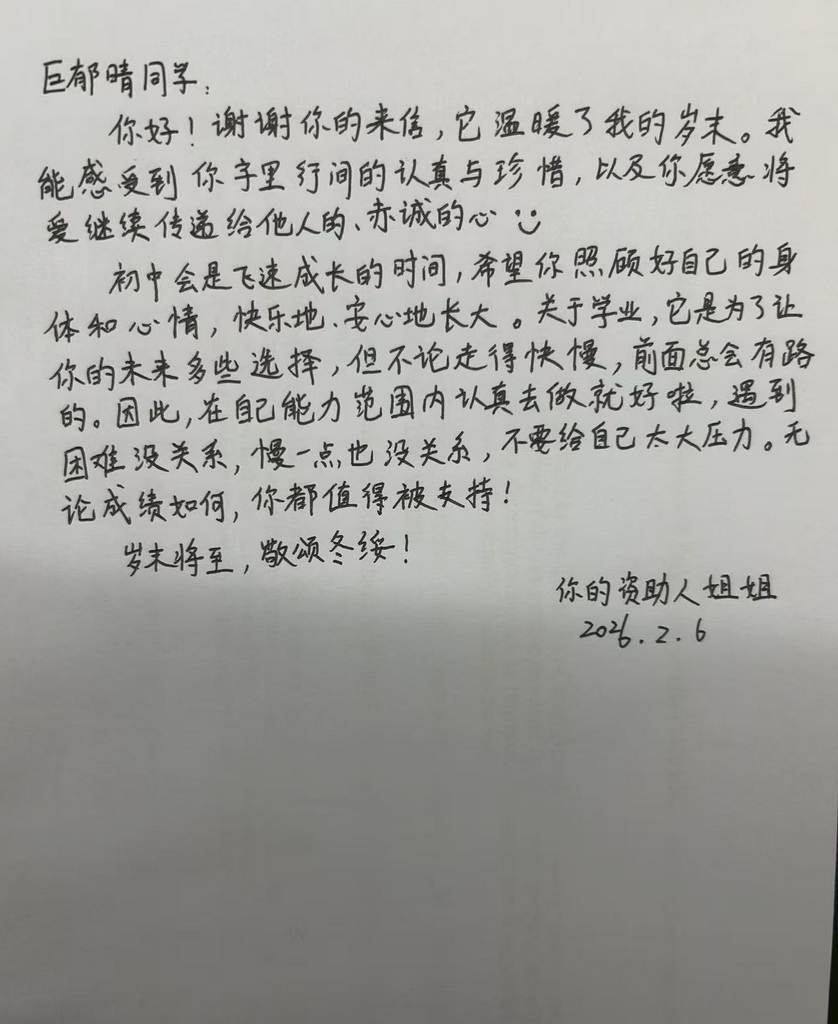 巨郁晴同学：
你好！谢谢你的来信，它温暖了我的岁末。我
能感受到你字里行间的认真与珍惜，以及你愿意将
爱继续传递给他人的、赤诚的心
初中会是飞速成长的时间，希望你照顾好自己的身
体和心情，快乐地、安心地长大。关于学业，它是为了让
你的未来多些选择，但不论走得快慢，前面总会有路
的。因此，在自己能力范围内认真去做就好啦，遇到
困难没关系，慢一点也没关系，不要给自己太大压力。无
论成绩如何，你都值得被支持！
岁末将至，敬颂冬绥！
你的资助人姐姐
2026.2.6